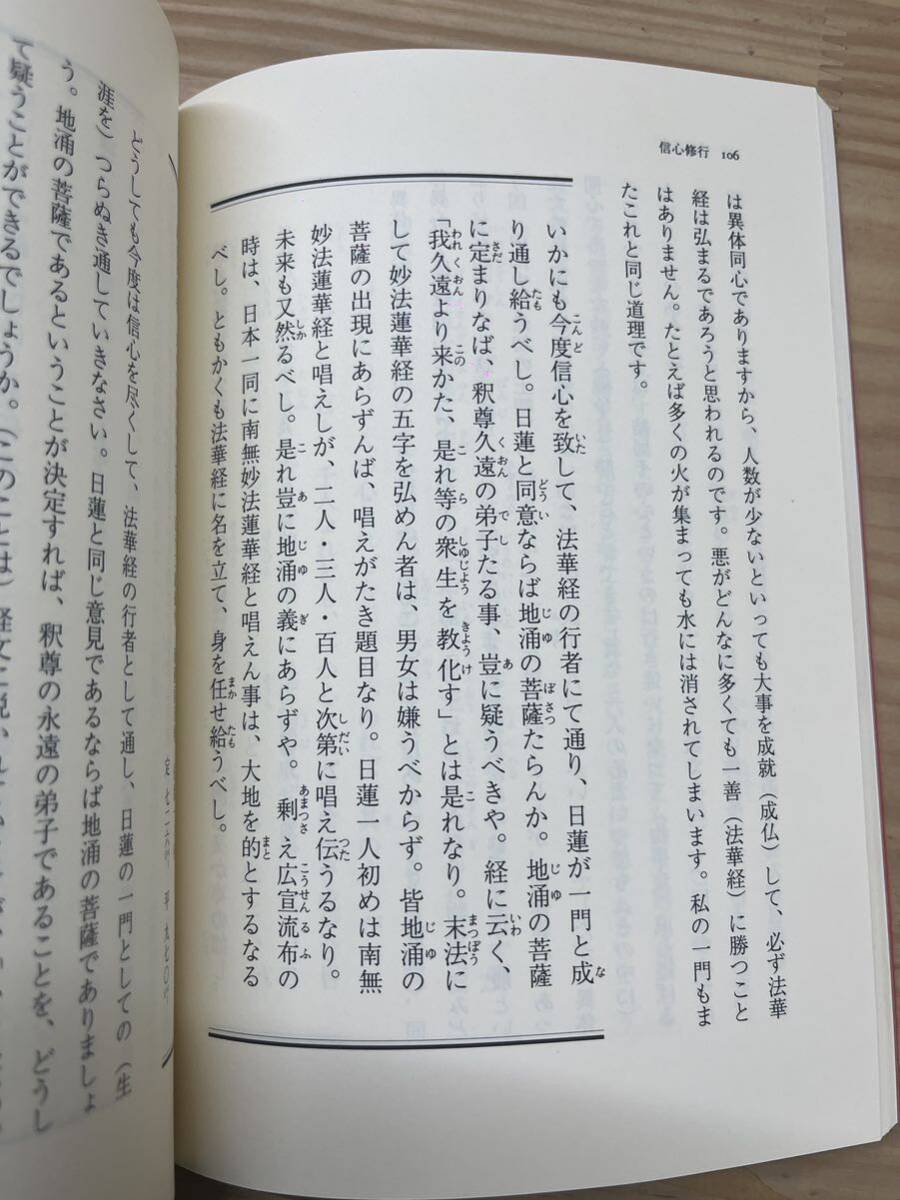 信心修行 106
は異体同心でありますから、人数が少ないといっても大事を成就（成仏）して、必ず法華
経は弘まるであろうと思われるのです。悪がどんなに多くても一善（法華経）に勝つこと
はありません。たとえば多くの火が集まっても水には消されてしまいます。私の一門もま
たこれと同じ道理です。
いかにも今度信心を致して、法華経の行者にて通り、日蓮が一門と成
り通し給うべし。日蓮と同意ならば地涌の菩薩たらんか。地涌の菩薩
に定まりなば、釈尊久遠の弟子たる事、豈に疑うべきや。経に云く、
「我久遠より来かた、是れ等の衆生を教化す」とは是れなり。末法に
して妙法蓮華経の五字を弘めん者は、男女は嫌うべからず。皆地涌の
菩薩の出現にあらずんば、唱えがたき題目なり。日蓮一人初めは南無
妙法蓮華経と唱えしが、二人・三人・百人と次第に唱え伝うるなり。
未来も又然るべし。是れ豈に地涌の義にあらずや。剰え広宣流布の
時は、日本一同に南無妙法蓮華経と唱えん事は、大地を的とするなる
べし。ともかくも法華経に名を立て、身を任せ給うべし。
どうしても今度は信心を尽くして、法華経の行者として通し、日蓮の一門としての（生
涯を）つらぬき通していきなさい。日蓮と同じ意見であるならば地涌の菩薩でありましょ
う。地涌の菩薩であるということが決定すれば、釈尊の永遠の弟子であることを、どうし
て疑うことができるでしょうか。（このことは）経文に説かれて